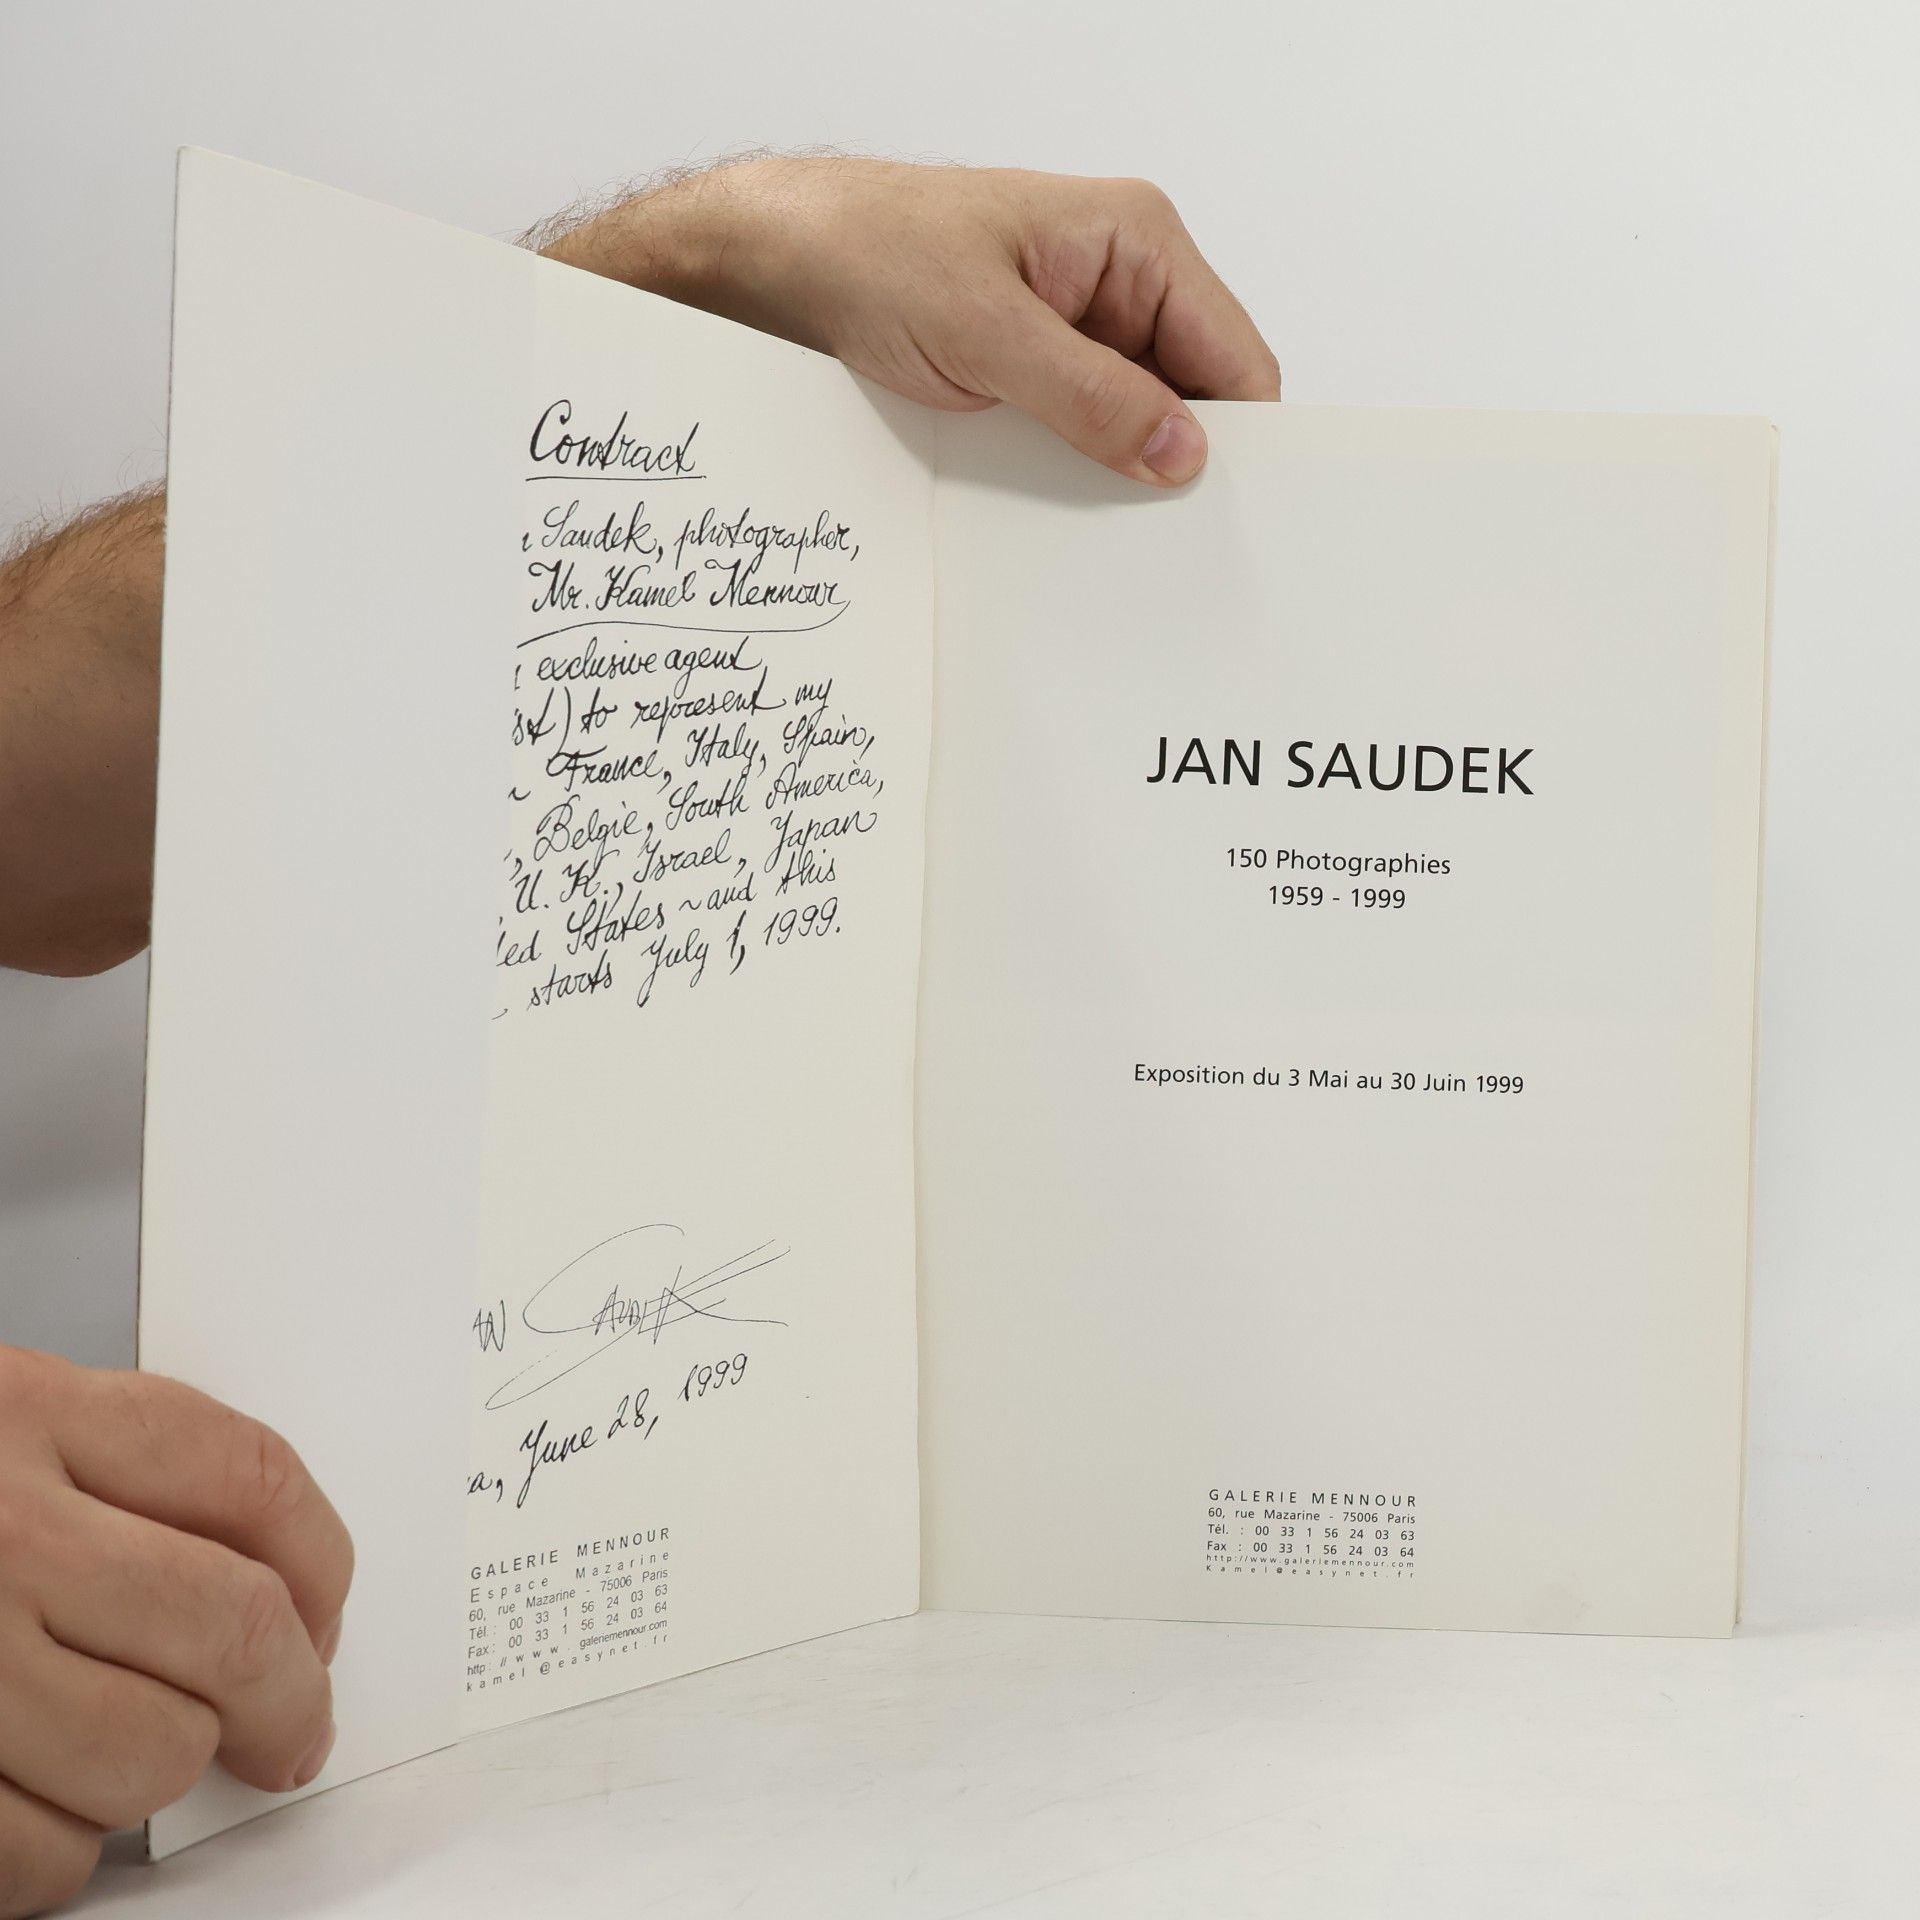 Contract
Saudek, photographer,
Mr. Kamel Mennour
exclusive agent
to represent my
France, Italy, Spain,
Belgie, South America,
U. K., Israel, Japan
States ~ and this
starts July 1, 1999.
SAUDEK
June 28, 1999
GALERIE MENNOUR
Espace Mazarine
60, rue Mazarine - 75006 Paris
Tél.: 00 33 1 56 24 03 63
Fax: 00 33 1 56 24 03 64
http://www.galeriemennour.com
kamel@easynet.fr
JAN SAUDEK
150 Photographies
1959 - 1999
Exposition du 3 Mai au 30 Juin 1999
GALERIE MENNOUR
60, rue Mazarine - 75006 Paris
Tél. : 00 33 1 56 24 03 63
Fax : 00 33 1 56 24 03 64
http://www.galeriemennour.com
Kamel@easynet.fr